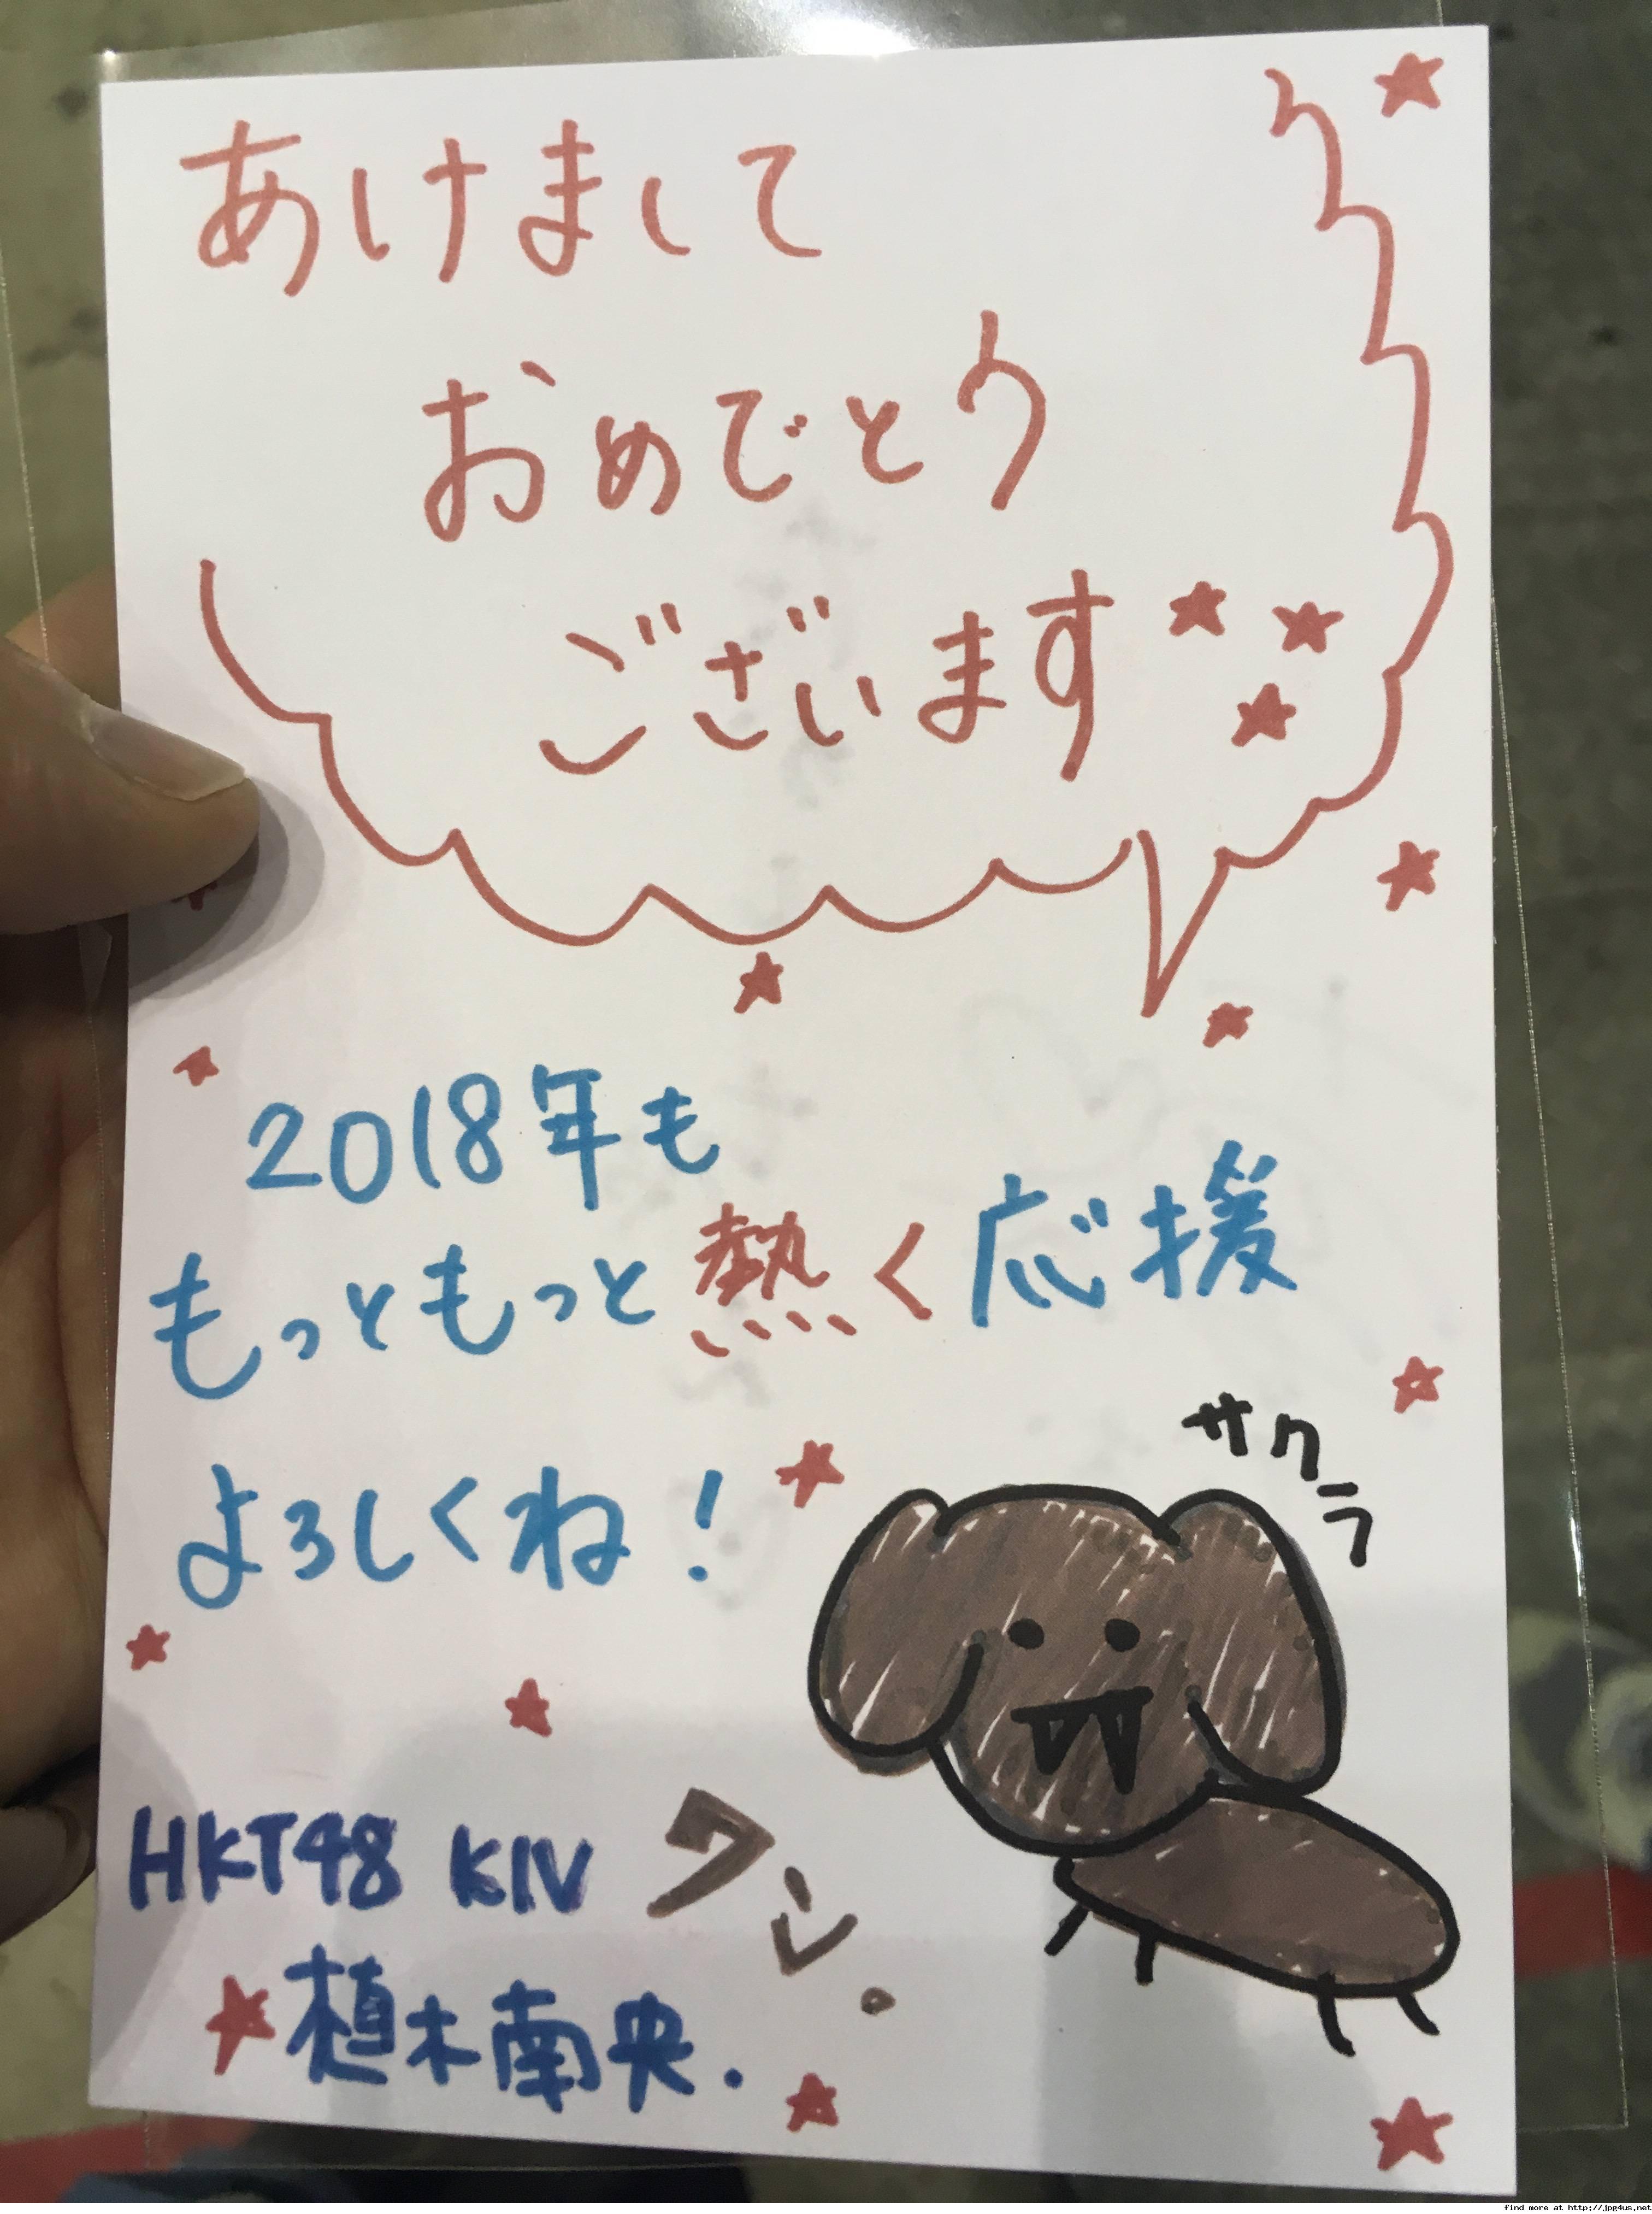 あけまして
おめでとう
ございます
2018年も
もっともっと熱く応援
よろしくね!
サクラ
クン.
HKT48 KIV
植木南央.
find more at http://jpg4us.net